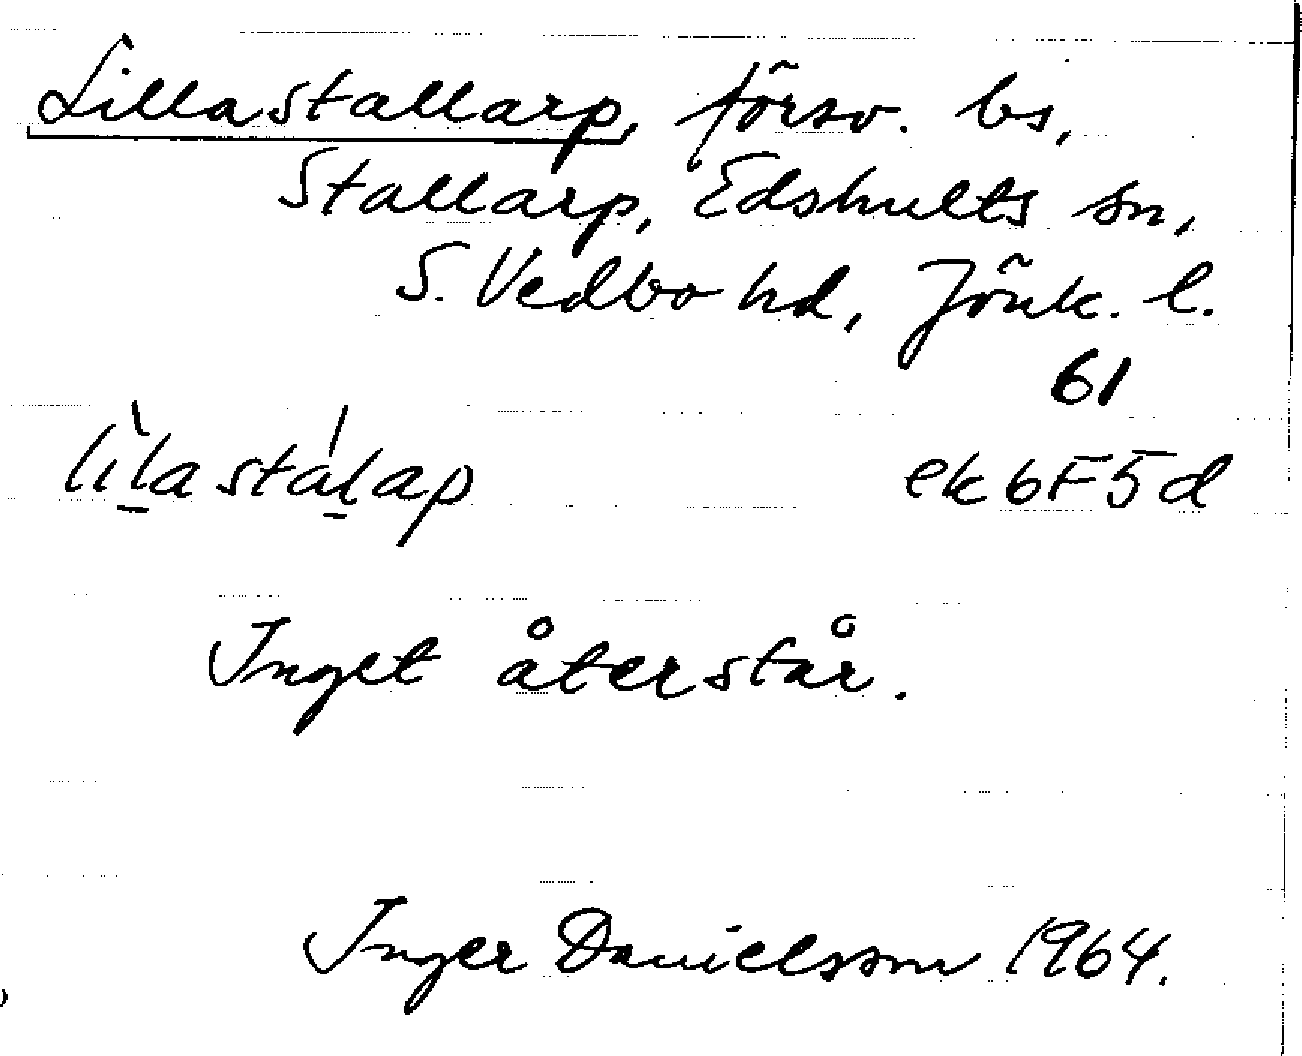 Lillastallarp, försv. bs,
Stallarp, Edshults sn,
S. Vedbo hd, Jönk. l.
61
lìl̠astál̠ap ek 6F5d
Inget återstår.
Inger Danielsson 1964.